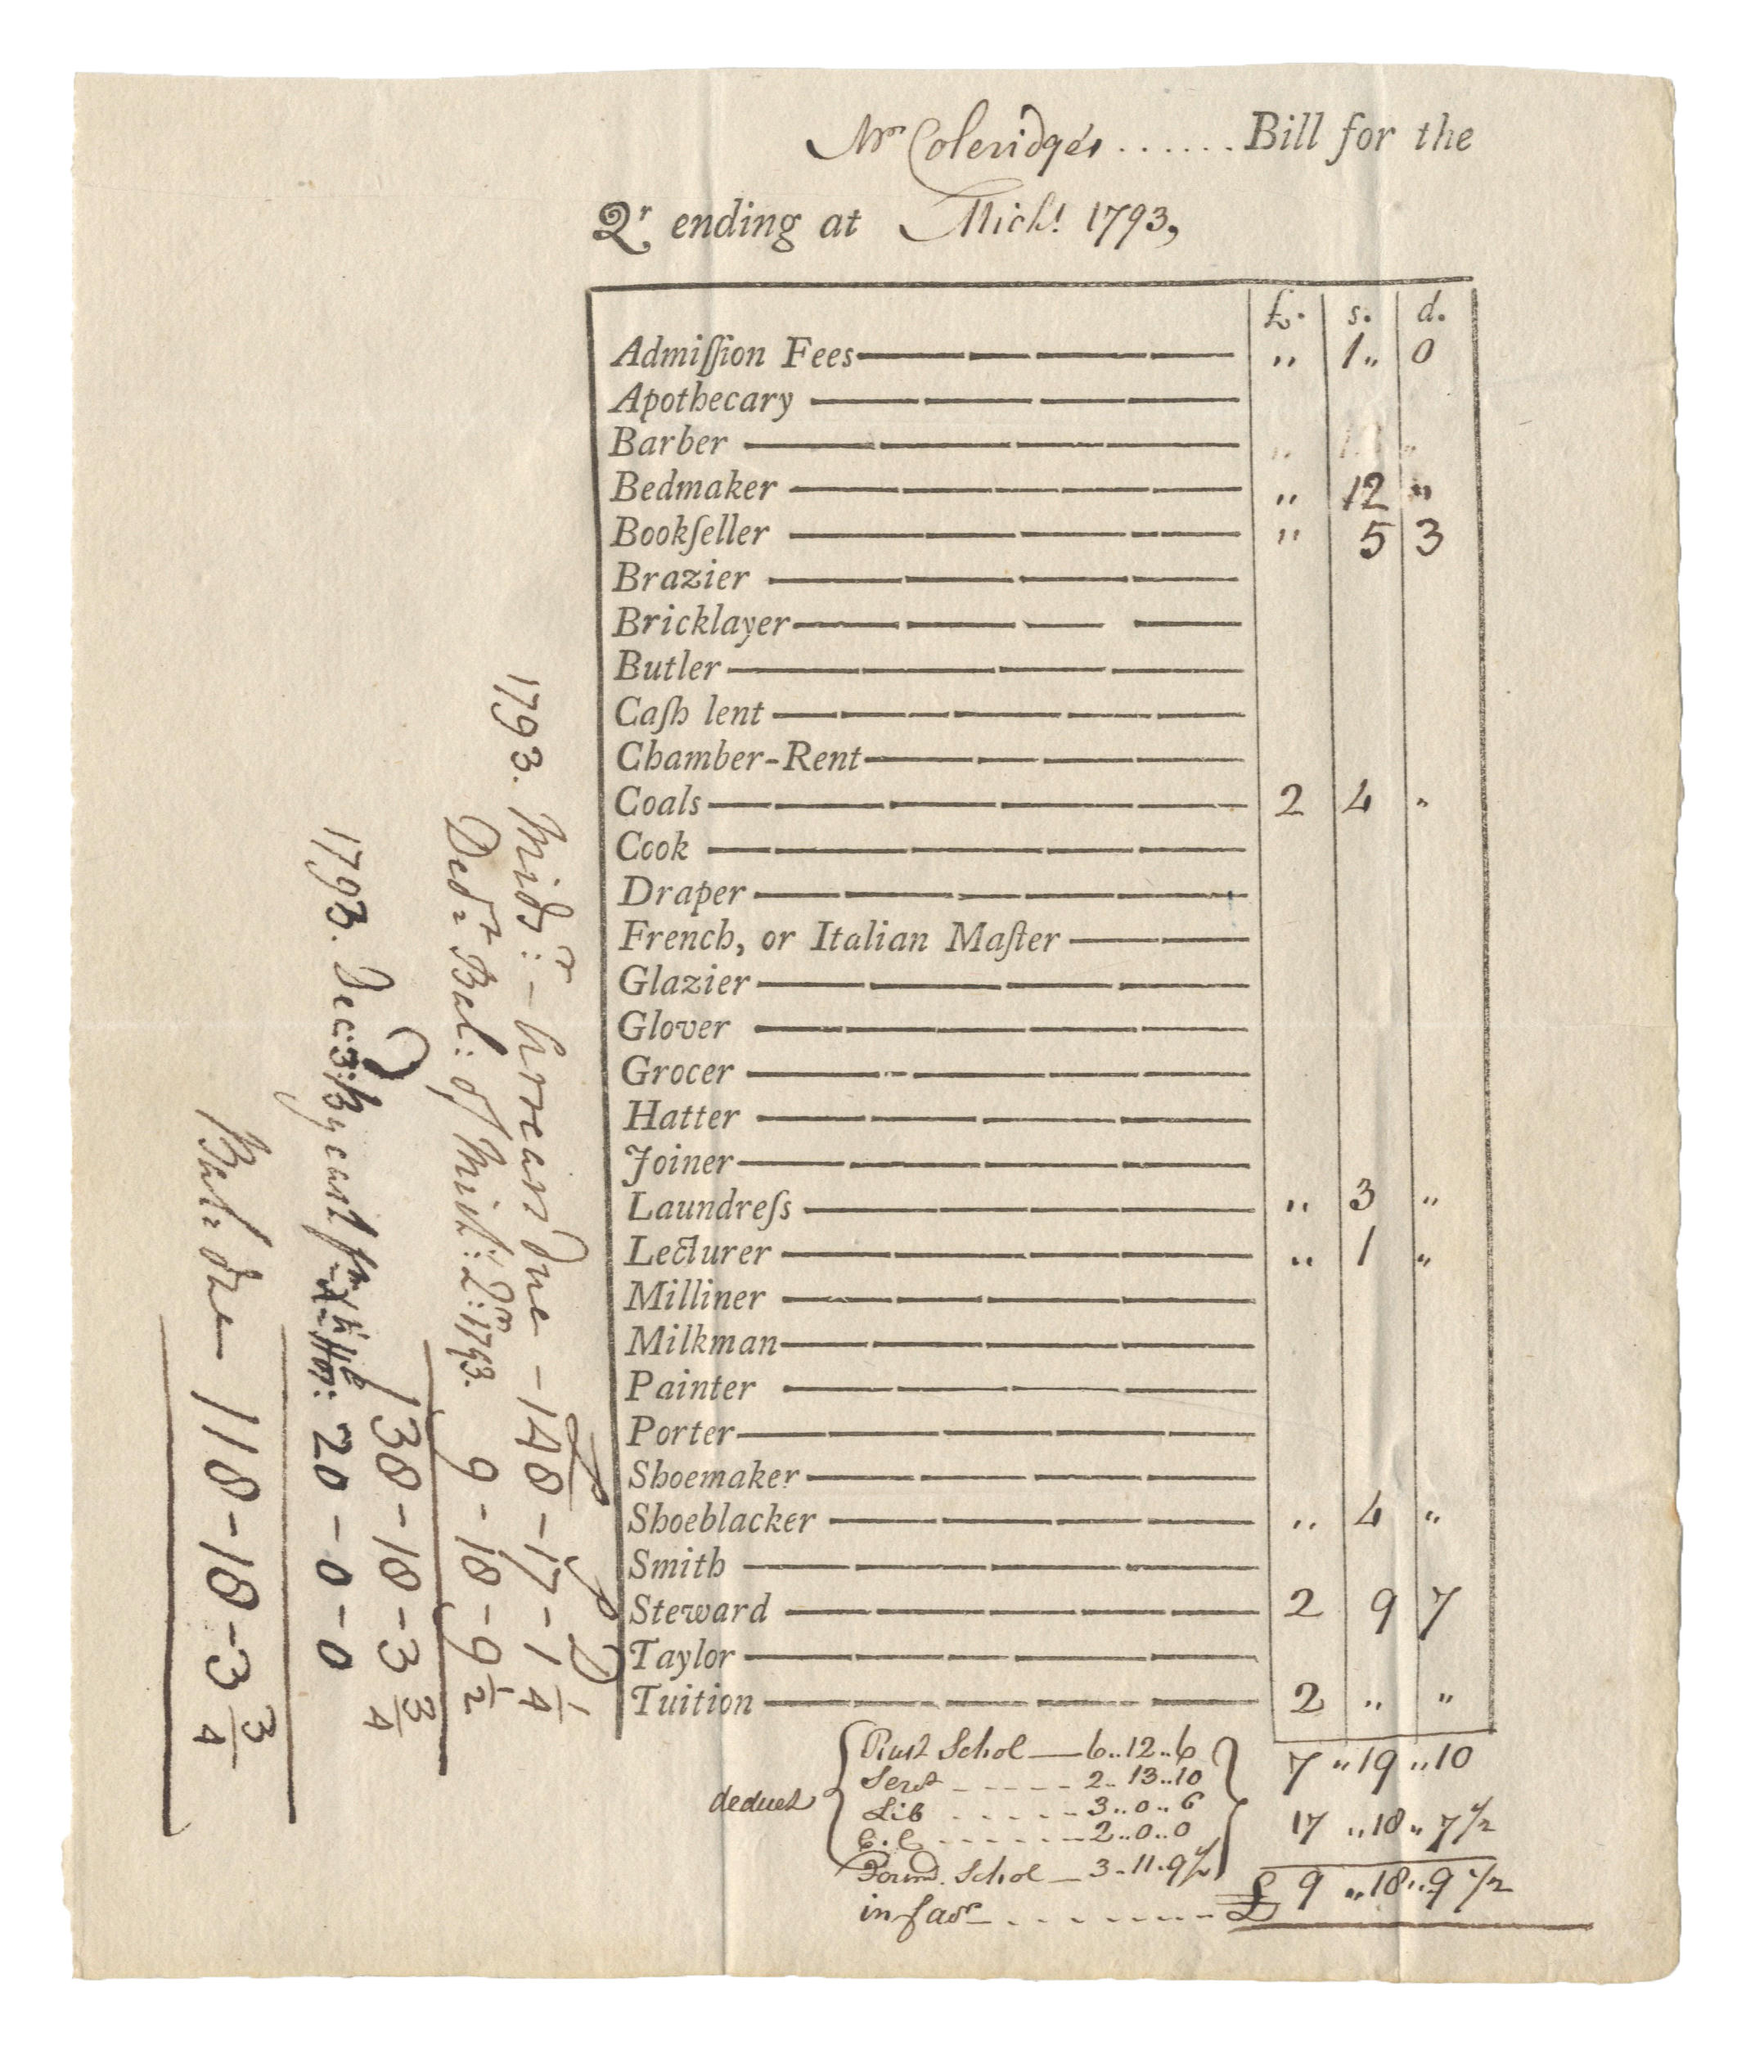 Mr Coleridge's ...... Bill for the
Qr ending at Michs 1793,
£. s. d.
Admiſſion Fees „ 1„ 0
Apothecary
Barber
Bedmaker „ 12 „
Bookſeller „ 5 3
Brazier
Bricklayer
Butler
Caſh lent
Chamber-Rent
Coals 2 4 „
Cook
Draper
French, or Italian Maſter
Glazier
Glover
Grocer
Hatter
Joiner
Laundreſs „ 3 „
Lecturer „ 1 „
Milliner
Milkman
Painter
Porter
Shoemaker
Shoeblacker „ 4 „
Smith
Steward 2 9 7
Taylor
Tuition 2 „ „
7 „19 „10
deduct
Rust Schol — 6..12..6
2..13..10
Lib ..... 3..0..6
2..0..0
Found. Schol — 3-11.9½
17 „18„ 7½
in favr ........ £ 9 „18„9½
1793. Midsr: - Arrears due - 148-17-1¼
Dedt Bal: of Mich: Qr: 1793. 9-18-9½
138-18-3¾
1793. Dec: 3: By cash 20-0-0
Bal: due 118-18-3¾